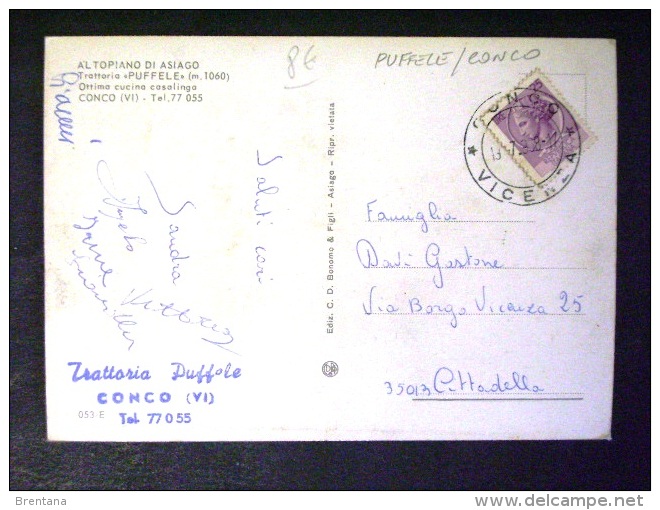 ALTOPIANO DI ASIAGO
Trattoria «PUFFELE» (m. 1060)
Ottima cucina casalinga
CONCO (VI) - Tel. 77 055
8€
PUFFELE/CONCO
CONCO
VICENZA
Saluti cari
Sandra
Angelo
Vittorio
Famiglia
Gastone
Via Borgo Vicenza 25
35013 Cittadella
Ediz. C. D. Bonomo & Figli - Asiago - Ripr. vietata
Trattoria Puffele
CONCO (VI)
Tel 77055
053-E
Brentana
delcampe.net